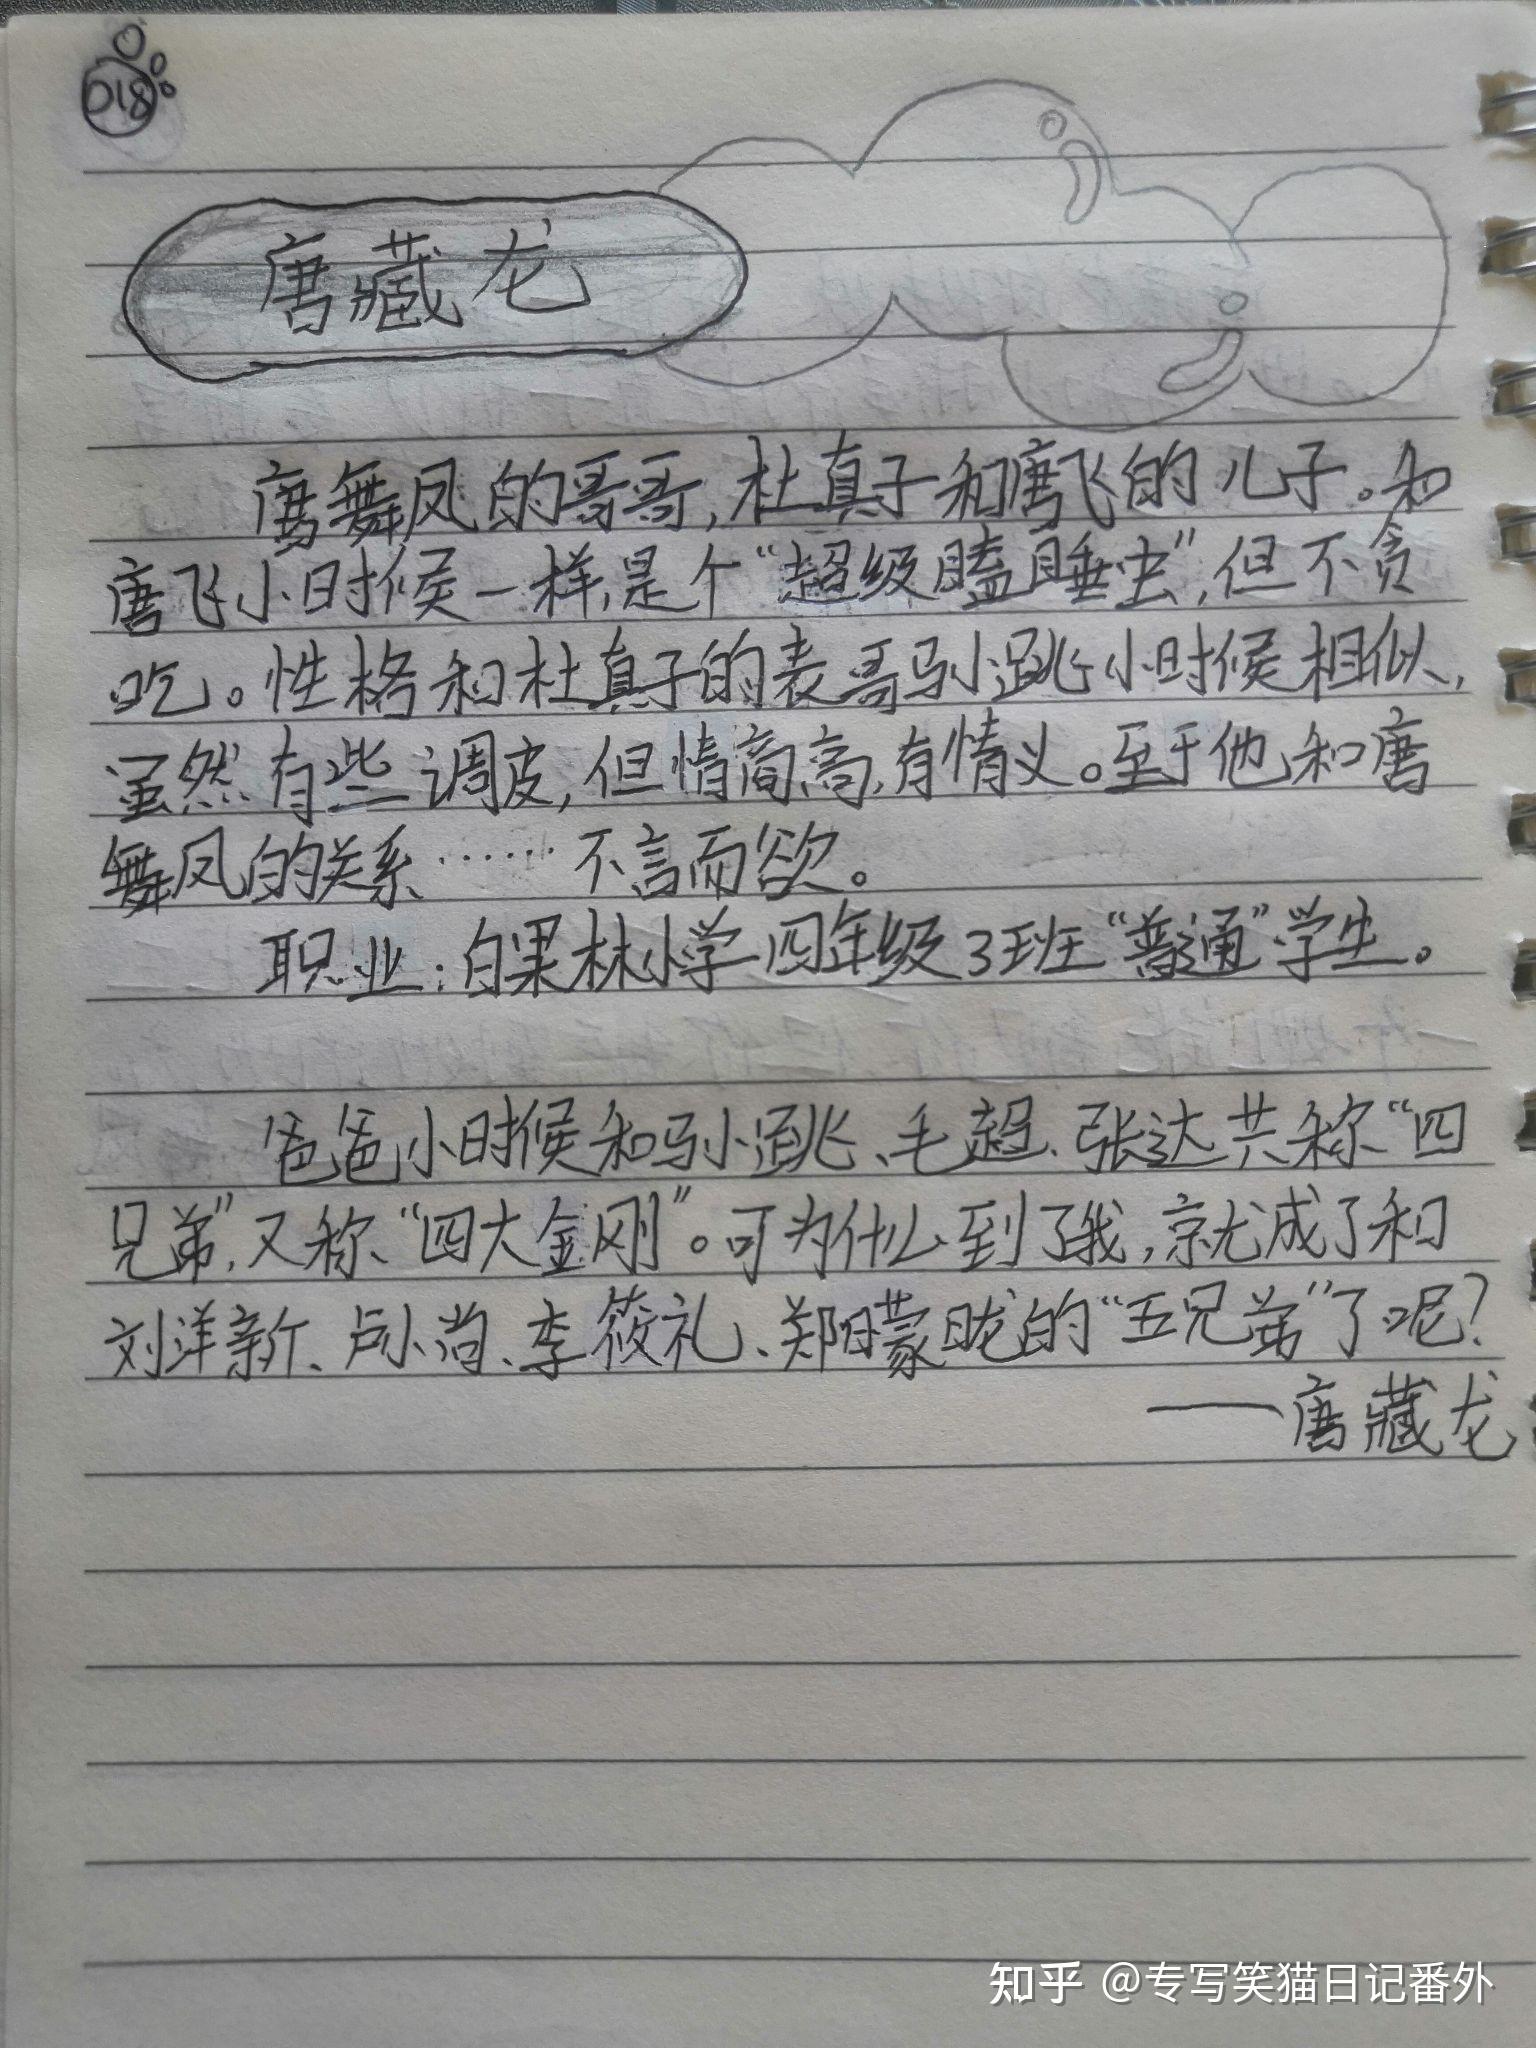 018
唐藏龙
唐舞凤的哥哥,杜真子和唐飞的儿子。和
唐飞小时候一样,是个“超级瞌睡虫”,但不贪
吃。性格和杜真子的表哥马小跳小时候相似,
虽然有些调皮,但情商高,有情义。至于他和唐
舞凤的关系……不言而欲。
职业:白果林小学四年级3班“普通”学生。
爸爸小时候和马小跳、毛超、张达共称“四
兄弟”,又称“四大金刚”。可为什么到了我,就成了和
刘洋新、卢小尚、李筱礼、郑曚昽的“五兄弟”了呢?
——唐藏龙
知乎 @专写笑猫日记番外